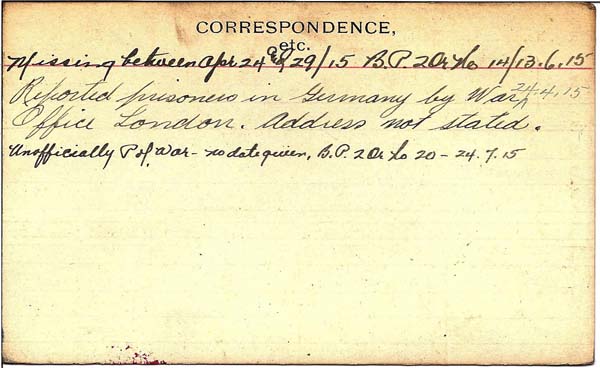 CORRESPONDENCE,
etc.
Missing between Apr 24 & 29/15 B.P. 2 Or No 14/13.6.15
Reported prisoners in Germany by War 24.4.15
Office London. Address not stated.
Unofficially P of War - no date given, B.P. 2 Or No 20 - 24.7.15